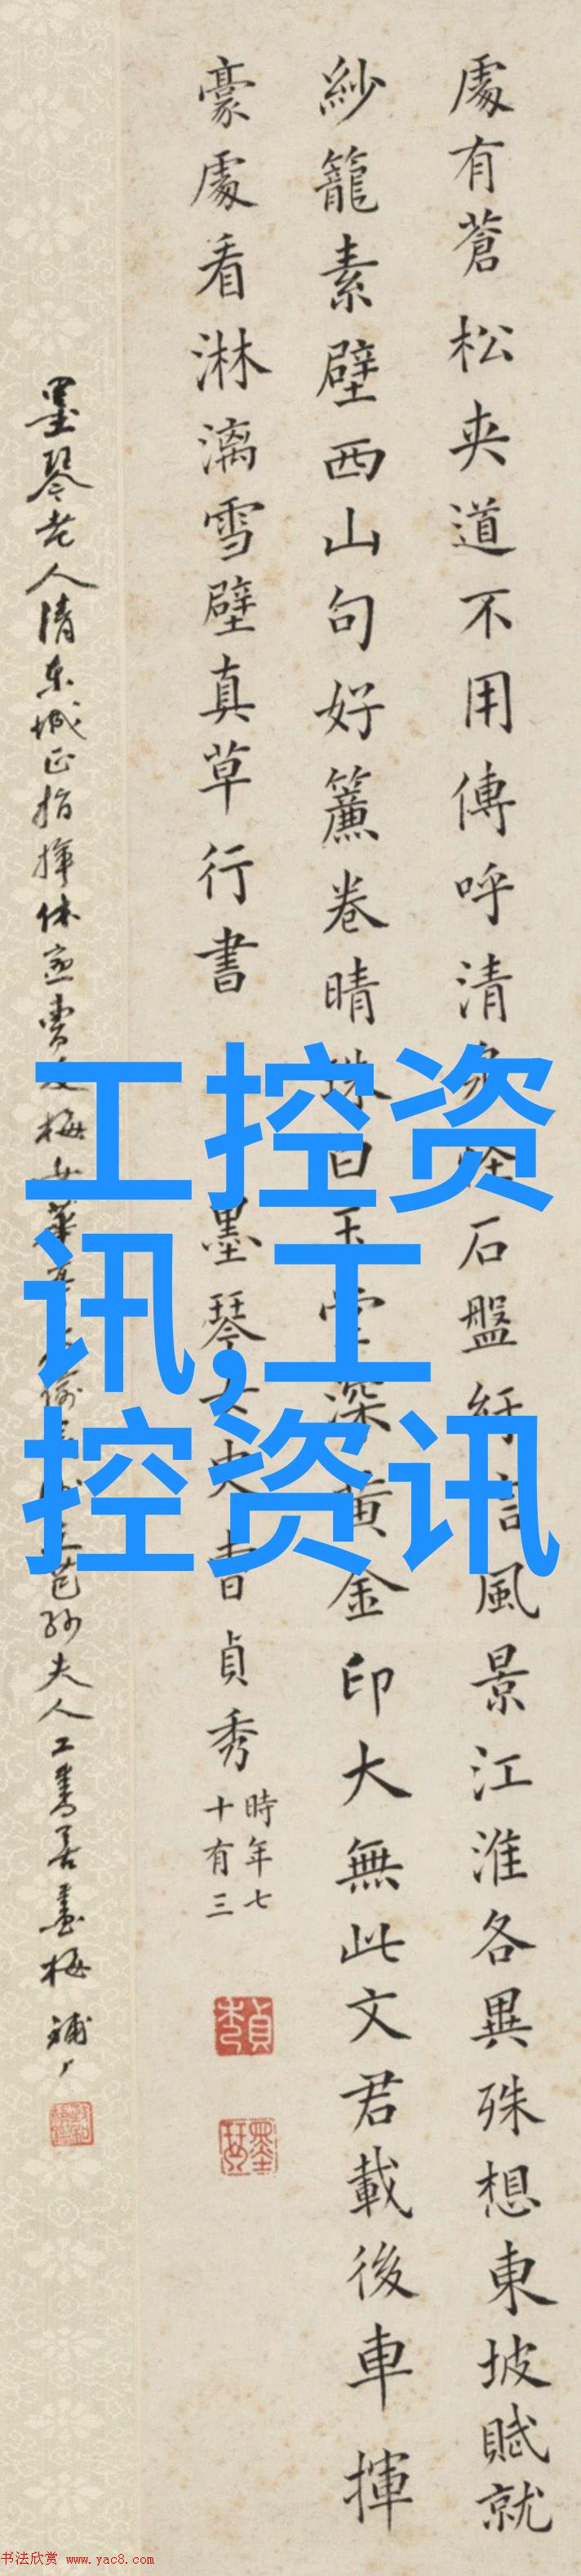 處有蒼松夾道不用傳呼清泉怪石盤紆信風景江淮各異殊想東坡賦就
紗籠素壁西山句好簾卷晴珠白玉堂深黃金印大無此文君載後車揮
豪處看淋漓雪壁真草行書
墨琴女史曹貞秀
時年七
十有三
貞秀
墨琴
墨琴老人清東城正指揮
夫人工書善畫梅
工控资
讯,工
控资讯
书法欣赏 www.yac8.com